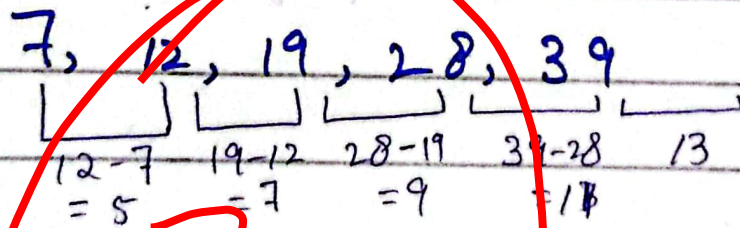 7, 12, 19, 28, 39
12-7 19-12 28-19 39-28 13
= 5 = 7 = 9 = 11